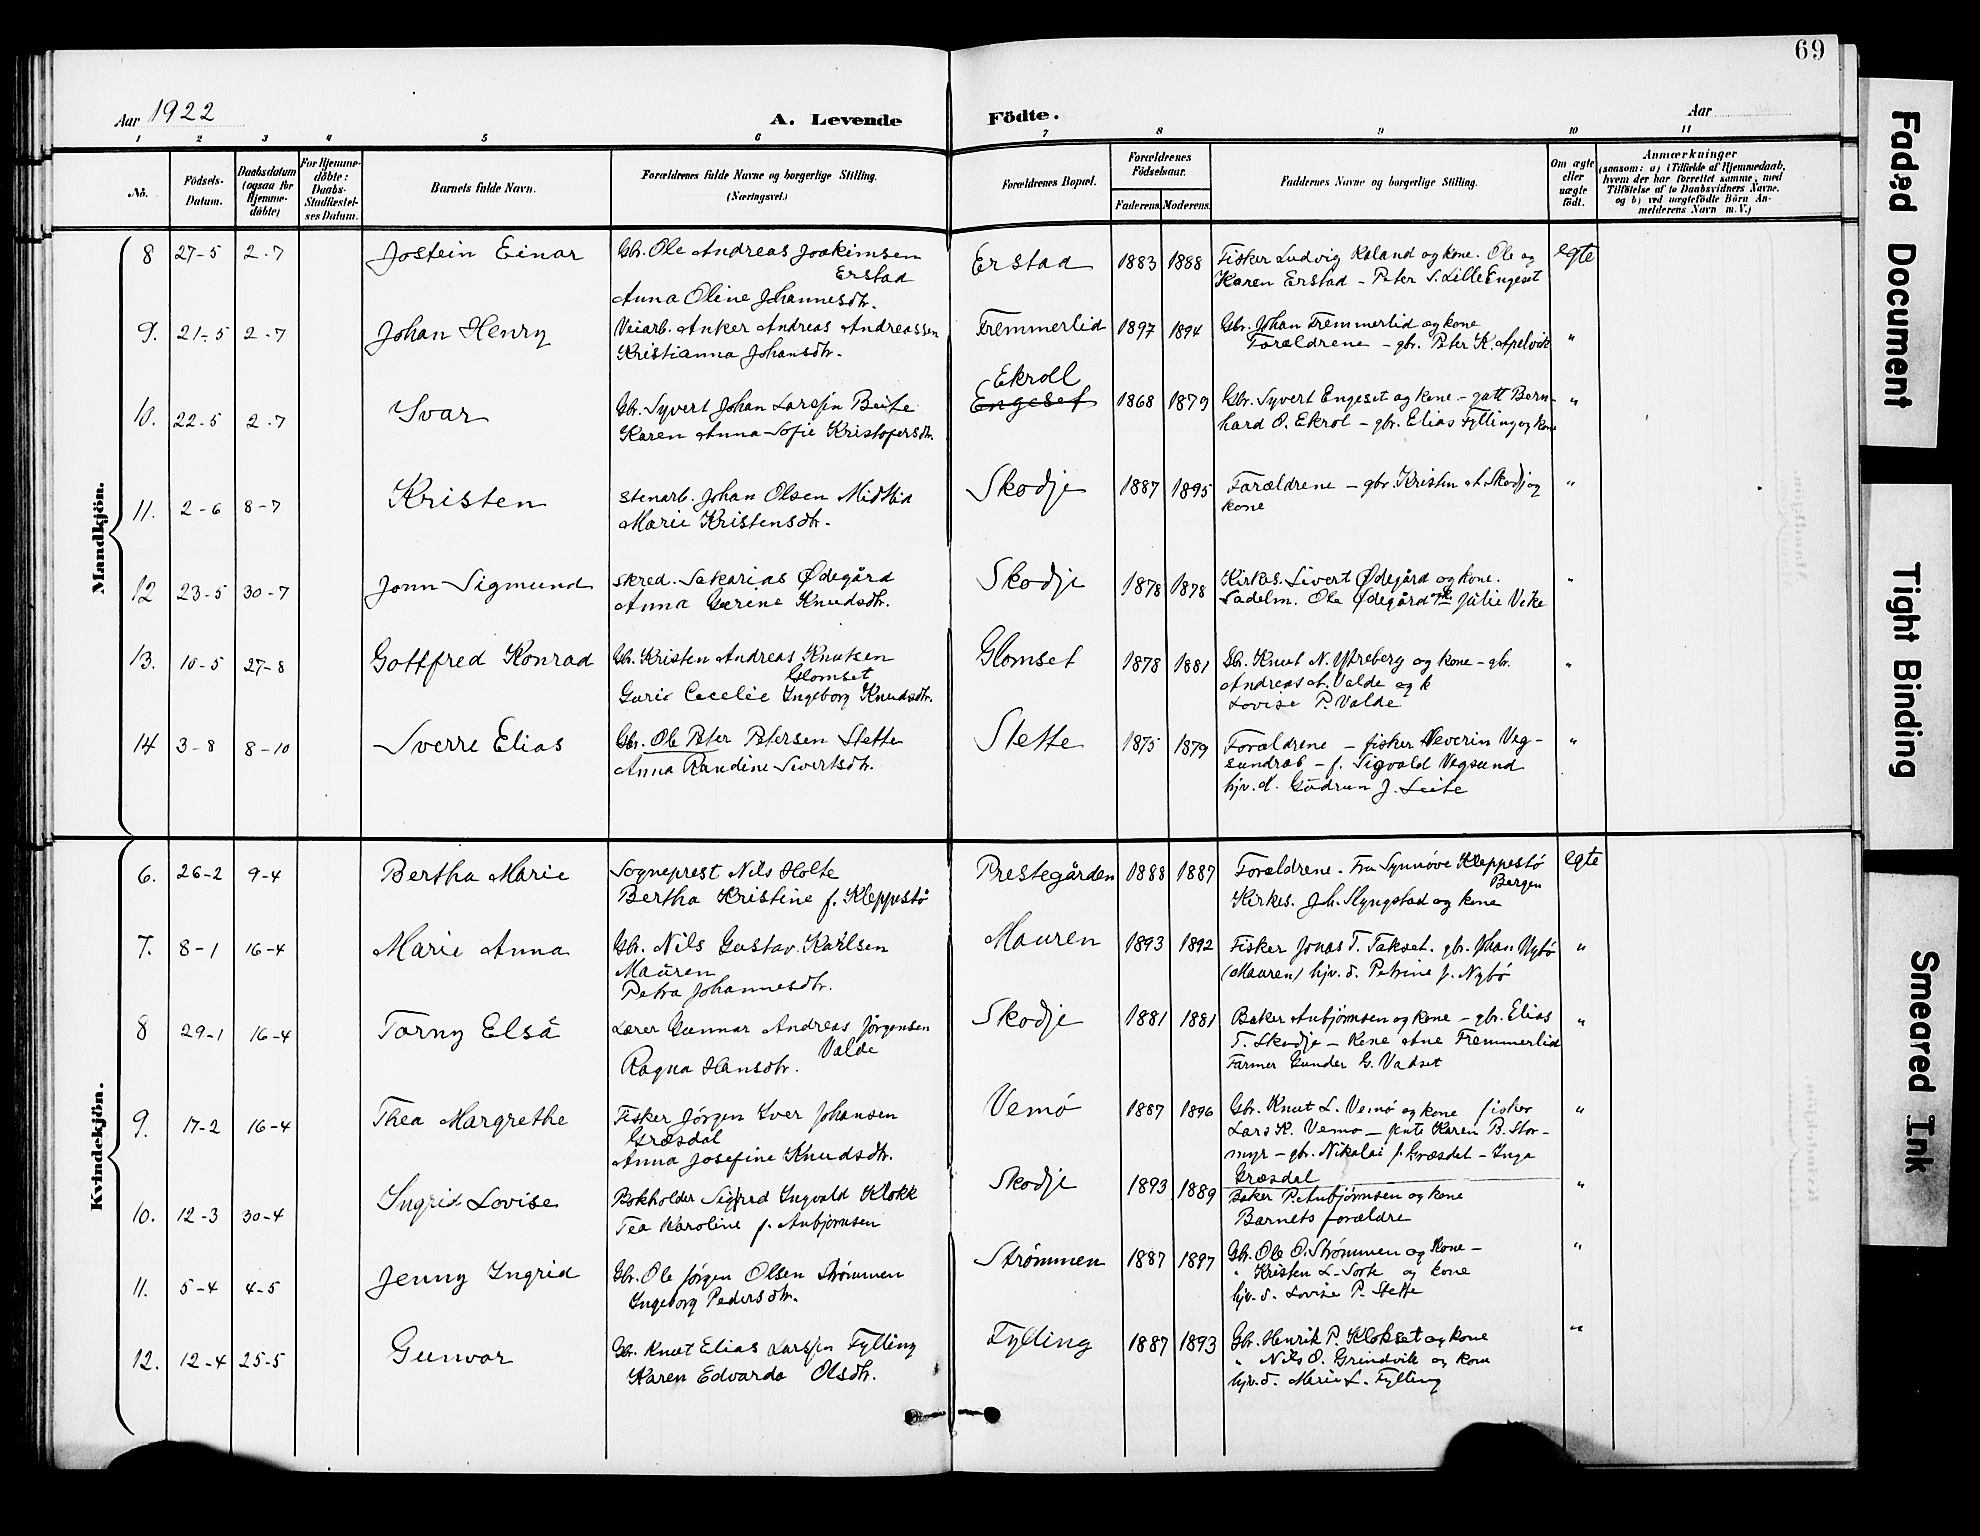 69
Aar 1922
A. Levende Födte.
Aar
1 2 3 4 5 6 7 8 9 10 11
No.
Födsels-Datum.
Daabsdatum (ogsaa for Hjemmedöbte)
For Hjemmedöbte: Daabs-Stadfæstelses Datum.
Barnets fulde Navn.
Forældrenes fulde Navne og borgerlige Stilling. (Næringsvei.)
Forældrenes Bopæl.
Forældrenes Födselsaar.
Faderens. Moderens.
Faddernes Navne og borgerlige Stilling.
Om ægte eller uægte födt.
Anmærkninger
(saasom: a) i Tilfælde af Hjemmedaab, hvem der har forrettet samme, med Tilföielse af to Daabsvidners Navne. og b) ved uægtefödte Börn Anmelderens Navn m. V.)
Mandkjön.
8 27-5 2-7 Jostein Einar Gbr. Ole Andreas Joakimsen Erstad 1883 1888 Fisker Ludvig Roland og kone. Ole og egte
Erstad
Anna Oline Johannesdtr. Karen Erstad - Peter S. Lille Engeset
9. 21-5 2-7 Johan Henry Veiarb. Anker Andreas Andreassen Fremmerlid 1897 1894 Gbr. Johan Fremmerlid og kone "
Kristianna Johansdtr. Forældrene - gbr. Peter K. Apelvik
Ekroll
10. 22-5 2-7 Ivar Gbr. Syvert Johan Larssen Beite Engeset 1868 1879 Gbr. Syvert Engeset og kone - gutt Bern- "
Karen Anna Sofie Kristofersdtr. hard O. Ekrol - gbr. Elias Fylling og kone
11. 2-6 8-7 Kristen Stenarb. Johan Olsen Midtlid Skodje 1887 1895 Forældrene - gbr. Kristen A. Skodj og "
Marie Kristensdtr. kone
12 23-5 30-7 Jonn Sigmund Skred. Sakarias Ødegård Skodje 1878 1878 Kirkes. Sivert Ødegård og kone. "
Anna Gærine Knudsdtr. Sadelm. Ole Ødegård og k. Julie Vike
13. 10-5 27-8 Gottfred Konrad Gbr. Kristen Andreas Knutsen Glomset 1878 1881 Gbr. Knut N. Ytreberg og kone - gbr. "
Glomset Andreas A. Valde og k
Guri Cecelie Ingeborg Knudsdtr. Lovise P. Valde
14 3-8 8-10 Sverre Elias Gbr. Ole Peter Petersen Stette Stette 1875 1879 Forældrene - fisker Severin Veg- "
Anna Randine Sivertsdtr. sundråb - f. Sigvald Vegsund
hjv. d. Gudrun J. Leite
Kvindekjön.
6. 26-2 9-4 Bertha Marie Sogneprest Nils Holte Prestegården 1888 1887 Forældrene. Fru Synnöve Kleppestö egte
Bergen
Bertha Kristine f. Kleppestö Kirkes. J. A. Slyngstad og kone
7. 8-1 16-4 Marie Anna Gbr. Nils Gustav Karlsen Mauren 1893 1892 Fisker Jonas T. Takset. gbr. Johan Nybö "
Mauren (Mauren) hjv. d. Petrine J. Nybö
Petra Johannesdtr.
8 29-1 16-4 Torny Elsa Lærer Gunnar Andreas Jörgensen Skodje 1881 1881 Baker Anbjörnsen og kone - gbr. Elias "
Valde T. Skodje - Kone Ane Fremmerlid
Ragna Hansdtr. Farmer Gunder G. Vadset
9. 17-2 16-4 Thea Margrethe Fisker Jörgen Iver Johansen Vemö 1887 1896 Gbr. Knut L. Vemö og kone fisker "
Græsdal Lars K. Vemo - pnt Karen B. Stor-
Anna Josefine Knudsdtr. myr - gbr. Nikolai J. Græsdal - Inga
Græsdal
10. 12-3 30-4 Ingrid Lovise Bokholder Sigfred Ingvald Klokk Skodje 1893 1889 Baker P. Anbjörnsen og kone "
Tea Karoline f. Anbjörnsen Barnets forældre
11. 5-4 4-5 Jenny Ingrid Gbr. Ole Jörgen Olsen Strömmen Strömmen 1887 1897 Gbr. Ole O. Strömmen og kone - "
Ingeborg Pedersdtr. " Kristen L. Sorte og kone
hjv. d. Lovise P. Stette
12. 12-4 25-5 Gunvor Gbr. Knut Elias Larssen Fylling Fylling 1887 1893 Gbr. Henrik P. Klokset og kone "
Karen Edvarda Olsdtr. " Nils O. Grindvik og kone
hjv. d. Marie L. Fylling
Faded Document
Tight Binding
Smeared Ink